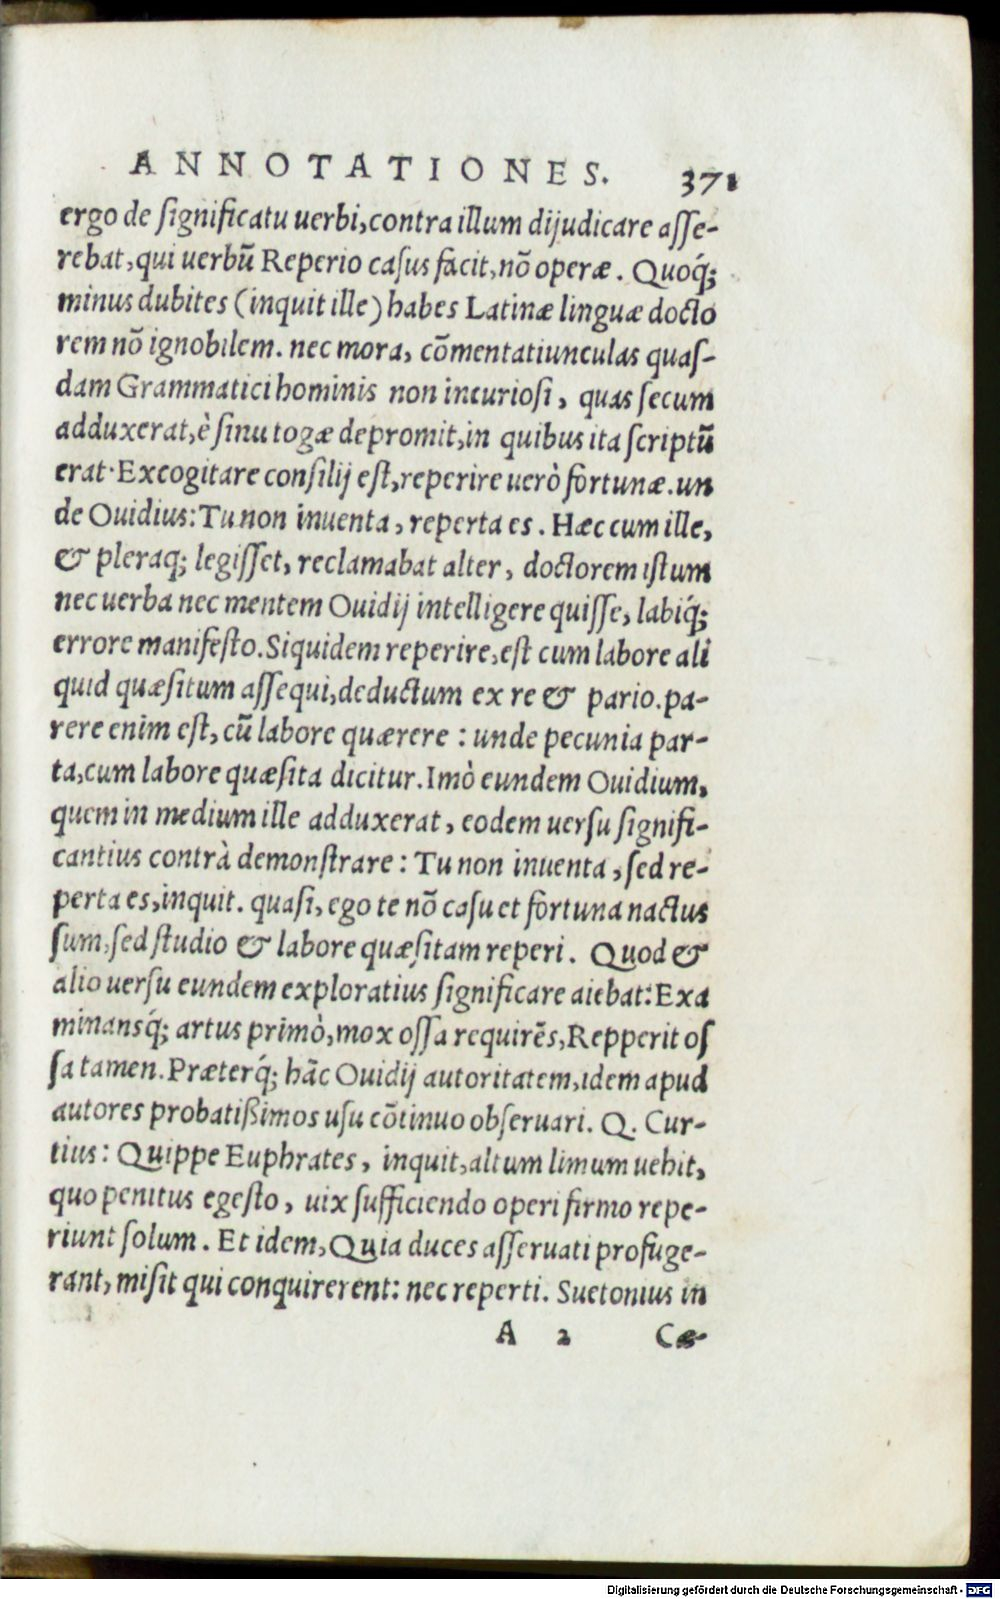 ANNOTATIONES. 371
ergo de ſignificatu uerbi, contra illum dijudicare aſſe-
rebat, qui uerbũ Reperio caſus facit, nõ operæ. Quoq́;
minus dubites (inquit ille) habes Latinæ linguæ docto
rem nõ ignobilem. nec mora, cõmentatiunculas quaſ-
dam Grammatici hominis non incurioſi, quas ſecum
adduxerat, è ſinu togæ depromit, in quibus ita ſcriptũ
erat· Excogitare conſilij eſt, reperire uerò fortunæ. un
de Ouidius: Tu non inuenta, reperta es. Hæc cum ille,
& pleraq; legiſſet, reclamabat alter, doctorem iſtum
nec uerba nec mentem Ouidij intelligere quiſſe, labiq́;
errore manifeſto. Siquidem reperire, eſt cum labore ali
quid quæſitum aſſequi, deductum ex re & pario. pa-
rere enim eſt, cũ labore quærere : unde pecunia par-
ta, cum labore quæſita dicitur. Imò eundem Ouidium,
quem in medium ille adduxerat, eodem uerſu signifi-
cantius contrà demonſtrare : Tu non inuenta, ſed re-
perta es, inquit. quaſi, ego te nõ caſu et fortuna nactus
ſum, ſed ſtudio & labore quæſitam reperi. Quod &
alio uerſu eundem exploratius ſignificare aiebat: Exa
minansq́; artus primò, mox oſſa requirẽs, Repperit oſ
ſa tamen. Præterq́; hãc Ouidij autoritatem, idem apud
autores probatißimos uſu cõtinuo obſeruari. Q. Cur-
tius: Quippe Euphrates, inquit, altum limum uehit,
quo penitus egeſto, uix ſufficiendo operi firmo repe-
riunt ſolum. Et idem, Quia duces aſſeruati profuge-
rant, miſit qui conquirerent: nec reperti. Suetonius in
A 2 Cæ-
Digitalisierung gefördert durch die Deutsche Forschungsgemeinschaft - DFG